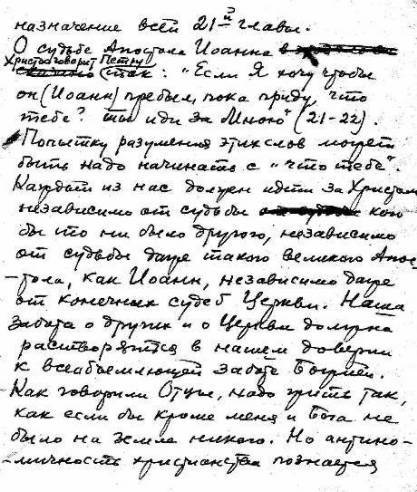 назначение всей 21-й главы.
О судьбе Апостола Иоанна
Христос говорит Петру
так: "Если Я хочу чтобы
он (Иоанн) пребыл, пока приду, что
тебе? ты иди за Мною" (21-22).
Попытку разумения этих слов может
быть надо начинать с "что тебе".
Каждый из нас должен идти за Христом
независимо от судьбы кого
бы то ни было другого, независимо
от судьбы даже такого великого Апос-
-тола, как Иоанн, независимо даже
от конечных судеб Церкви. Наша
забота о других и о Церкви должна
растворяться в нашем доверии
к всеобъемлющей заботе Божией.
Как говорили Отцы, надо жить так,
как если бы кроме меня и Бога не
было на земле никого. Но антино-
-мичность христианства познается